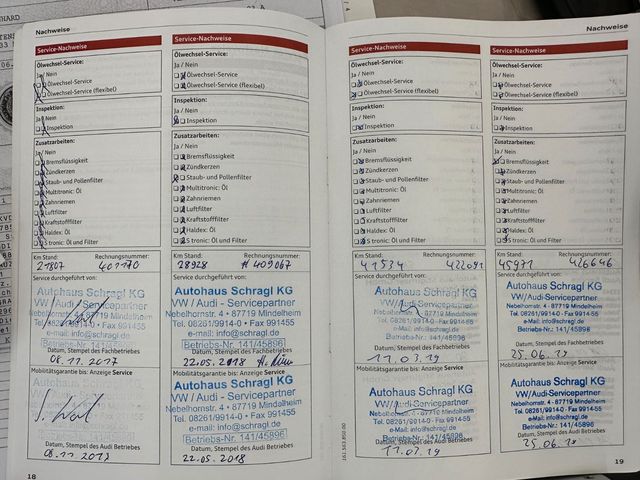 Nachweise
Service-Nachweise
Ölwechsel-Service:
Ja / Nein
Ölwechsel-Service
Ölwechsel-Service (flexibel)
Inspektion:
Ja / Nein
Inspektion
Zusatzarbeiten:
Ja / Nein
Bremsflüssigkeit
Zündkerzen
Staub- und Pollenfilter
Multitronic: Öl
Zahnriemen
Luftfilter
Kraftstofffilter
Haldex: Öl
S tronic: Öl und Filter
Km Stand: Rechnungsnummer:
21807 401170
Service durchgeführt von:
Autohaus Schragl KG
VW / Audi - Servicepartner
Nebelhornstr. 4 • 87719 Mindelheim
Tel. 08261/9914-0 • Fax 991455
e-mail: info@schragl.de
Betriebs-Nr.: 141/45896
Datum, Stempel des Fachbetriebes
08.11.2017
Mobilitätsgarantie bis: Anzeige Service
Datum, Stempel des Audi Betriebes
08.11.2017
18
Service-Nachweise
Ölwechsel-Service:
Ja / Nein
Ölwechsel-Service
Ölwechsel-Service (flexibel)
Inspektion:
Ja / Nein
Inspektion
Zusatzarbeiten:
Ja / Nein
Bremsflüssigkeit
Zündkerzen
Staub- und Pollenfilter
Multitronic: Öl
Zahnriemen
Luftfilter
Kraftstofffilter
Haldex: Öl
S tronic: Öl und Filter
Km Stand: Rechnungsnummer:
28928 409067
Service durchgeführt von:
Autohaus Schragl KG
VW / Audi - Servicepartner
Nebelhornstr. 4 • 87719 Mindelheim
Tel. 08261/9914-0 • Fax 991455
e-mail: info@schragl.de
Betriebs-Nr.: 141/45896
Datum, Stempel des Fachbetriebes
22.05.2018
Mobilitätsgarantie bis: Anzeige Service
Autohaus Schragl KG
VW / Audi - Servicepartner
Nebelhornstr. 4 • 87719 Mindelheim
Tel. 08261/9914-0 • Fax 991455
e-mail: info@schragl.de
Betriebs-Nr.: 141/45896
Datum, Stempel des Audi Betriebes
22.05.2018
Nachweise
Service-Nachweise
Ölwechsel-Service:
Ja / Nein
Ölwechsel-Service
Ölwechsel-Service (flexibel)
Inspektion:
Ja / Nein
Inspektion
Zusatzarbeiten:
Ja / Nein
Bremsflüssigkeit
Zündkerzen
Staub- und Pollenfilter
Multitronic: Öl
Zahnriemen
Luftfilter
Kraftstofffilter
Haldex: Öl
S tronic: Öl und Filter
Km Stand: Rechnungsnummer:
41534 422091
Service durchgeführt von:
Autohaus Schragl KG
VW / Audi - Servicepartner
Nebelhornstr. 4 • 87719 Mindelheim
Tel. 08261/9914-0 • Fax 9914-55
e-Mail: info@schragl.de
Betriebs-Nr.: 141/45896
Datum, Stempel des Fachbetriebes
11.03.19
Mobilitätsgarantie bis: Anzeige Service
Autohaus Schragl KG
VW / Audi - Servicepartner
Nebelhornstr. 4 • 87719 Mindelheim
Tel. 08261/9914-0 • Fax 9914-55
e-Mail: info@schragl.de
Betriebs-Nr.: 141/45896
Datum, Stempel des Audi Betriebes
11.03.19
Service-Nachweise
Ölwechsel-Service:
Ja / Nein
Ölwechsel-Service
Ölwechsel-Service (flexibel)
Inspektion:
Ja / Nein
Inspektion
Zusatzarbeiten:
Ja / Nein
Bremsflüssigkeit
Zündkerzen
Staub- und Pollenfilter
Multitronic: Öl
Zahnriemen
Luftfilter
Kraftstofffilter
Haldex: Öl
S tronic: Öl und Filter
Km Stand: Rechnungsnummer:
45971 426646
Service durchgeführt von:
Autohaus Schragl KG
VW / Audi - Servicepartner
Nebelhornstr. 4 • 87719 Mindelheim
Tel. 08261/9914-0 • Fax 9914-55
e-Mail: info@schragl.de
Betriebs-Nr.: 141/45896
Datum, Stempel des Fachbetriebes
25.06.19
Mobilitätsgarantie bis: Anzeige Service
Autohaus Schragl KG
VW / Audi - Servicepartner
Nebelhornstr. 4 • 87719 Mindelheim
Tel. 08261/9914-0 • Fax 9914-55
e-Mail: info@schragl.de
Betriebs-Nr.: 141/45896
Datum, Stempel des Audi Betriebes
25.06.19
19